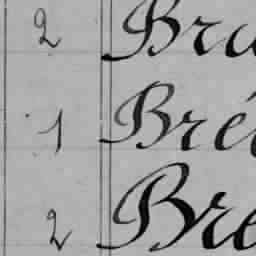 2 Bru
1 Bré
2 Bre